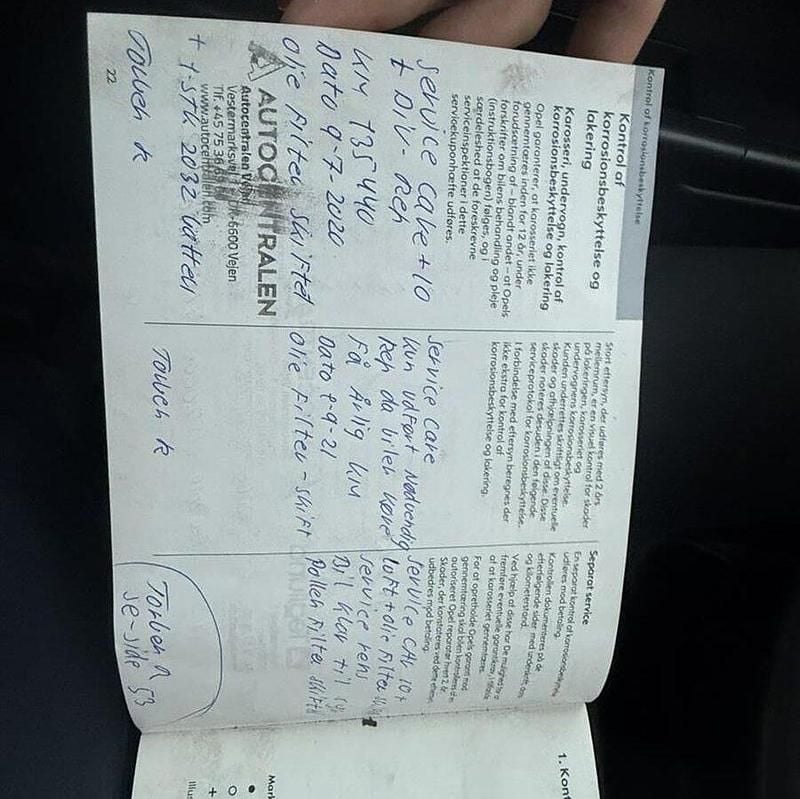 Kontrol af korrosionsbeskyttelse
Kontrol af
korrosionsbeskyttelse og
lakering
Karosseri, undervogn, kontrol af
korrosionsbeskyttelse og lakering
Opel garanterer, at karosseriet ikke
gennemtæres inden for 12 år, under
forudsætning af – blandt andet – at Opels
forskrifter om bilens behandling og pleje
(instruktionsbogen) følges, og i
særdeleshed at de foreskrevne
serviceinspektioner i dette
servicekuponhæfte udføres.
Service cake + 10
+ Div- Rep
KM 135440
Dato 9-7-2020
olie Filter skiftet
AUTOCENTRALEN
Autocentralen Vejen
Vestermarksvej 6600 Vejen
Tlf. +45 75 36
www.autocentralen.com
+ 1-STK 2032 batteri
Torben k
22
Stort eftersyn, der udføres med 2 års
mellemrum, er en visuel kontrol for skader
på lakeringen, karosseriet og
undervognens korrosionsbeskyttelse.
Kunden underrettes skriftligt om eventuelle
skader og afhjælpningen af disse. Disse
skader noteres desuden i den følgende
serviceprotokol for korrosionsbeskyttelse.
I forbindelse med eftersyn beregnes der
ikke ekstra for kontrol af
korrosionsbeskyttelse og lakering.
service cake
kun udført Nødvendig
Rep da bilen køre
Få Årlig km
Dato 9-9-21
olie Filter - skift
Torben k
Separat service
En separat kontrol af korrosionsbeskyttelse
udføres mod betaling.
Kontrollen dokumenteres på de
efterfølgende sider med underskrift, dato
og kilometerstand.
Ved hjælp af disse har De mulighed for at
fremføre eventuelle garantikrav i tilfælde
af at karosseriet gennemtæres.
For at opretholde Opels garanti mod
gennemtæring skal bilen kontrolleres af en
autoriseret Opel reparatør hvert 2. år.
Skader, der konstateres ved dette eftersyn,
udbedres mod betaling.
Service CAV 10+
Luft + olie Filter
service
Bil klar til
Pollen Filter skiftet
Torben
se-side 53
1. Kon
Mark
Illus